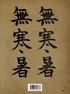 無寒暑
無寒暑